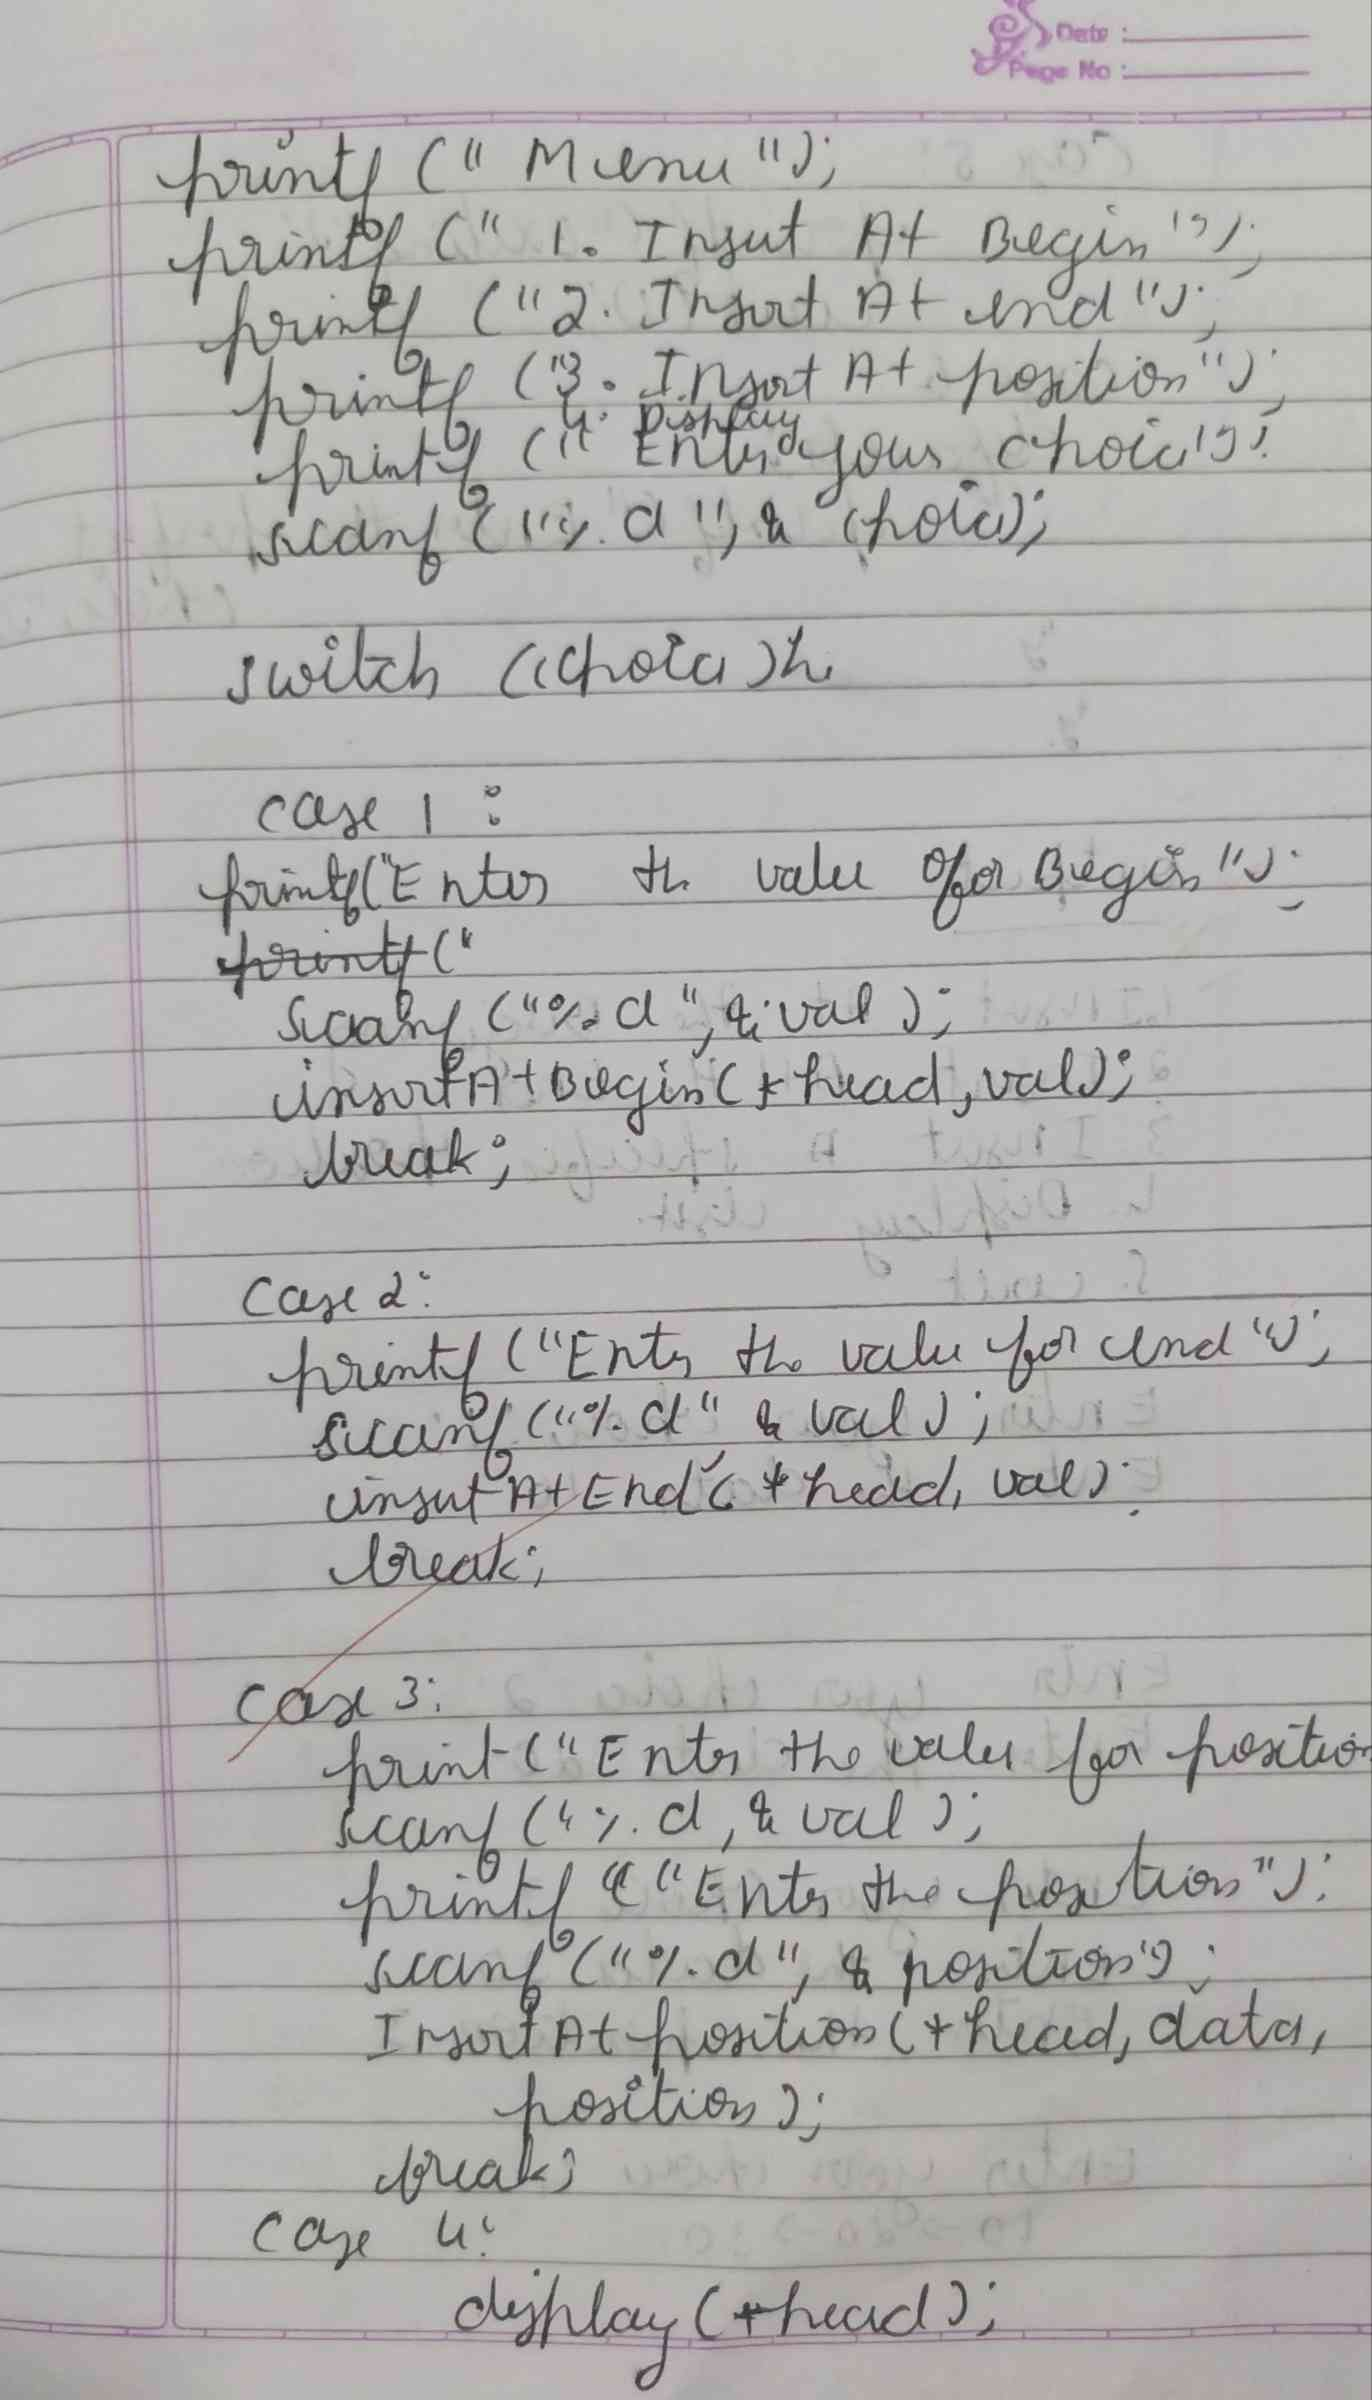 Date :
Page No :
printf (" Menu ");
printf (" 1. Insert At Begin ");
printf ("2. Insert At end");
printf ("3. Insert At position");
4. Display
printf (" Enter your choice");
scanf ("%d", & choice);
switch (choice){
case 1 :
printf("Enter the value for Begin");
printf("
scanf ("%d", & val );
insertAtBegin(*head, val);
break;
case 2:
printf ("Enter the value for end");
scanf ("%d" & val);
insertAtEnd (*head, val);
break;
case 3:
print ("Enter the value for position
scanf ("%d, & val );
printf (("Enter the position");
scanf ("%d", & position");
InsertAtposition(*head, data,
position);
break;
case 4:
display (*head);